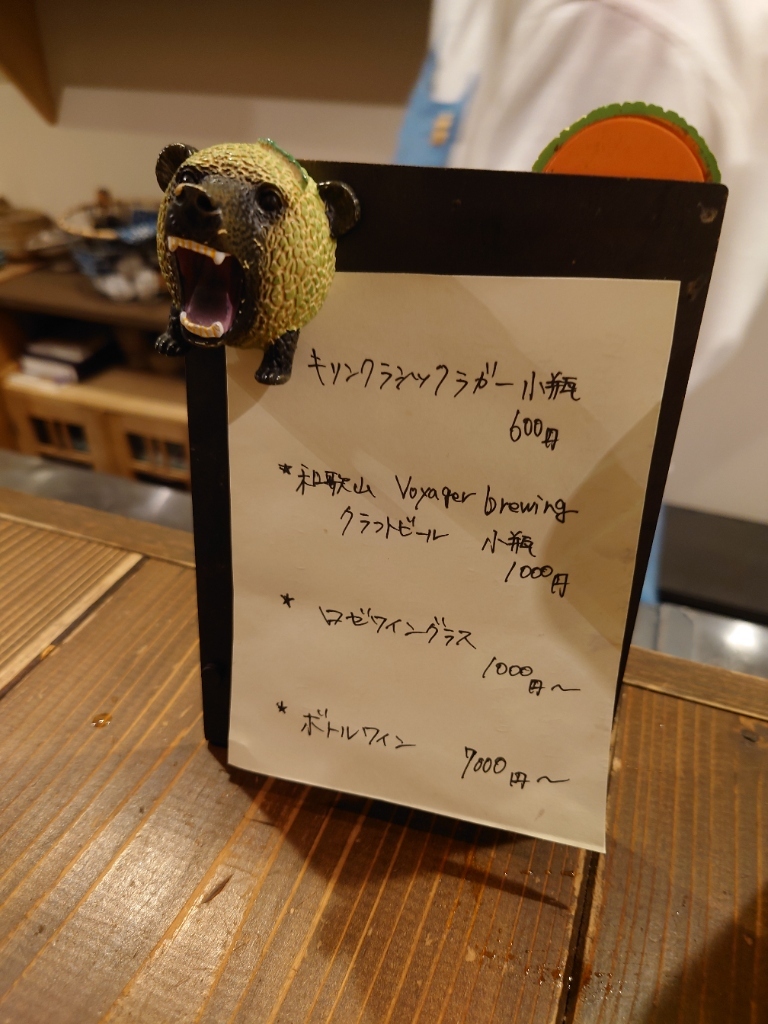 キリンクラシックラガー 小瓶
600円
* 和歌山 Voyager brewing
クラフトビール 小瓶
1000円
* ロゼワイングラス
1000円〜
* ボトルワイン 7000円〜